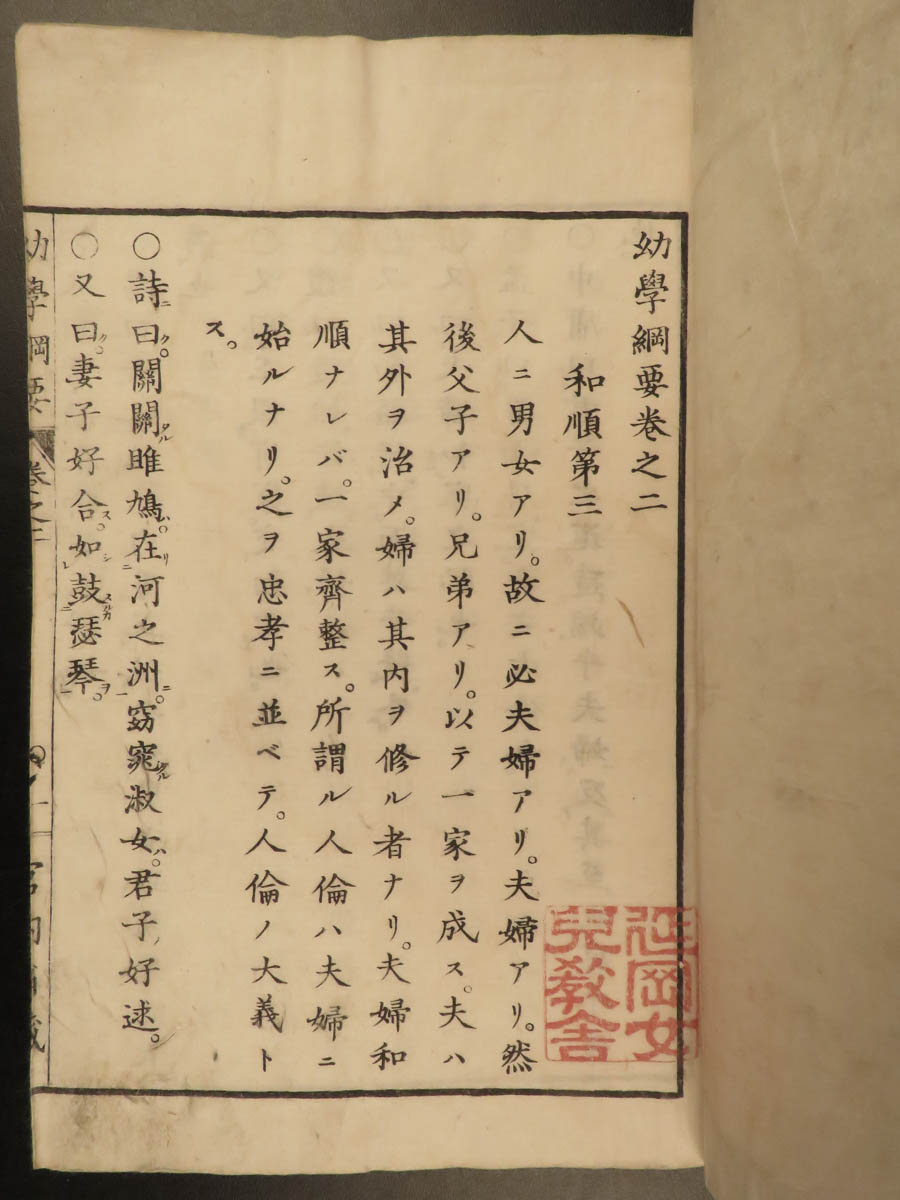 幼學綱要卷之二
和順第三
人ニ男女アリ。故ニ必夫婦アリ。夫婦アリ。然
後父子アリ。兄弟アリ。以テ一家ヲ成ス。夫ハ
其外ヲ治メ。婦ハ其内ヲ修ル者ナリ。夫婦和
順ナレバ。一家齊整ス。所謂ル人倫ハ夫婦ニ
始ルナリ。之ヲ忠孝ニ並ベテ。人倫ノ大義ト
ス。
〇詩ニ曰ク。關關タル雎鳩ハ。在リ二河之洲ニ一。窈窕タル淑女ハ。君子ノ好逑。
〇又曰ク。妻子好合ス。如シレ鼓スルガ二瑟琴ヲ一。
幼學綱要 卷之二 一 宮內省藏
延岡女
兒教舍